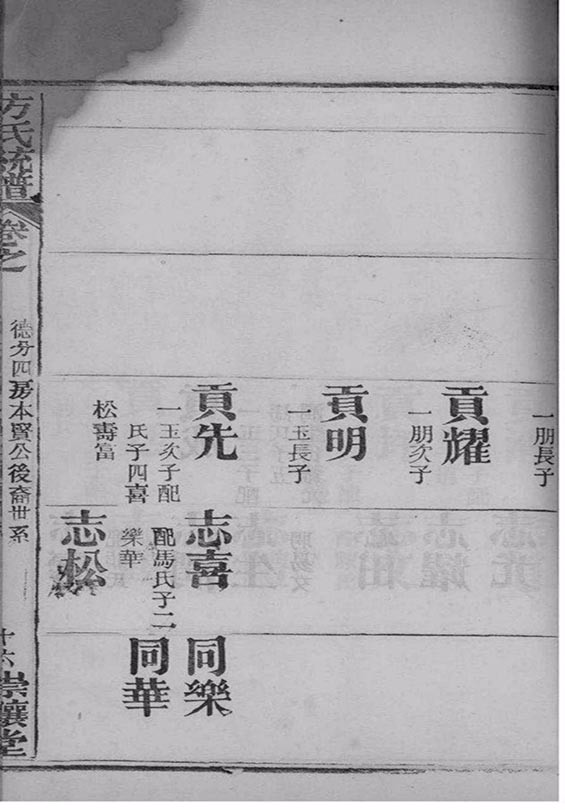 一朋長子
貢耀
一朋次子
貢明
一玉長子
貢先
一玉次子配
氏子四喜
松壽富
志喜
配馬氏子二
樂華
志松
同樂
同華
方氏統譜
卷之
德分四房本賢公後裔世系
十六
堂